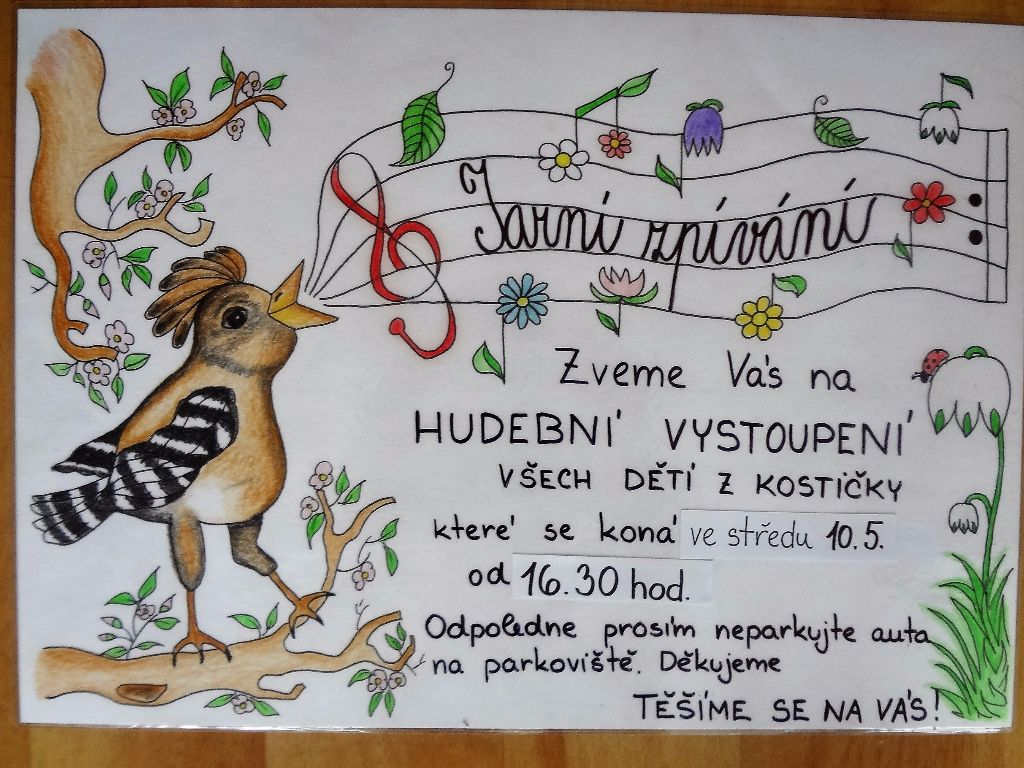 Jarní zpívání
Zveme Vás na
HUDEBNÍ VYSTOUPENÍ
VŠECH DĚTÍ Z KOSTIČKY
které se koná ve středu 10.5.
od 16.30 hod.
Odpoledne prosím neparkujte auta
na parkoviště. Děkujeme
TĚŠÍME SE NA VÁS!